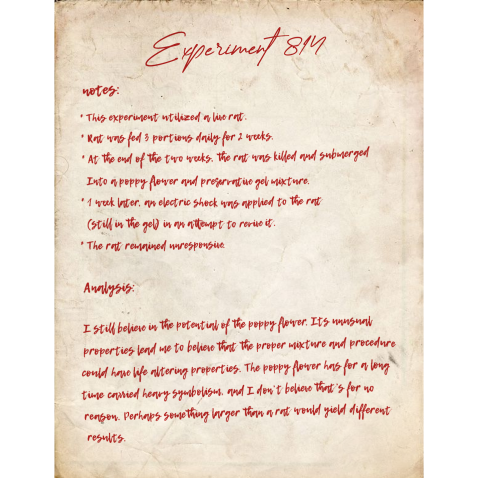 Experiment 814
notes:
* This experiment utilized a live rat.
* Rat was fed 3 portions daily for 2 weeks.
* At the end of the two weeks, the rat was killed and submerged
Into a poppy flower and preservative gel mixture.
* 1 week later, an electric shock was applied to the rat
(still in the gel) in an attempt to revive it.
* The rat remained unresponsive.
Analysis:
I still believe in the potential of the poppy flower. Its unusual
properties lead me to believe that the proper mixture and procedure
could have life altering properties. The poppy flower has for a long
time carried heavy symbolism, and I don't believe that's for no
reason. Perhaps something larger than a rat would yield different
results.